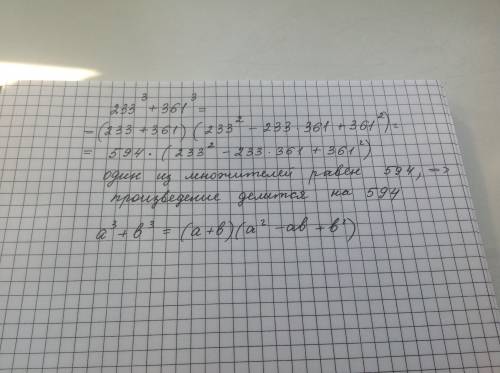 233³ + 361³ =
= (233 + 361) (233² - 233 · 361 + 361²) =
= 594 · (233² - 233 · 361 + 361²)
один из множителей равен 594, =>
произведение делится на 594
a³ + b³ = (a + b)(a² - ab + b²)